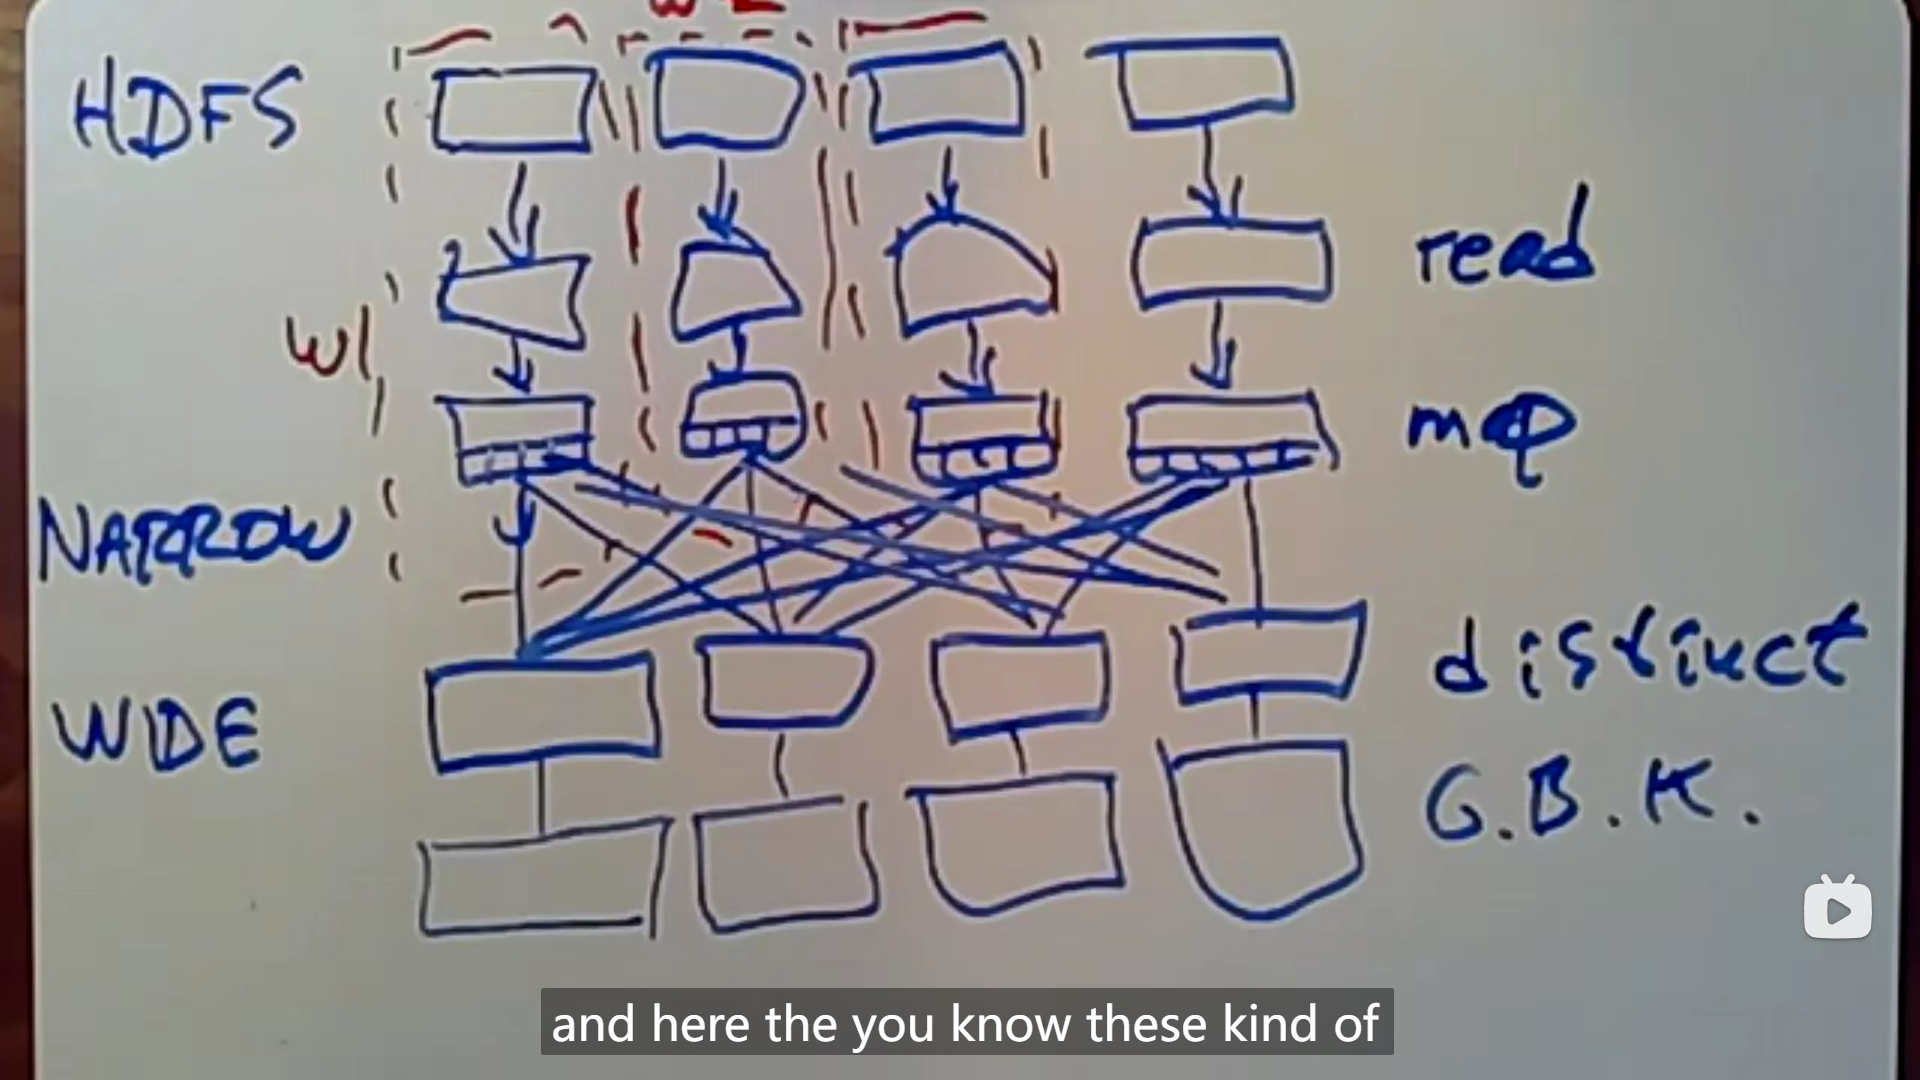 W2
HDFS
read
W1
map
NARROW
distinct
WIDE
G.B.K.
and here the you know these kind of